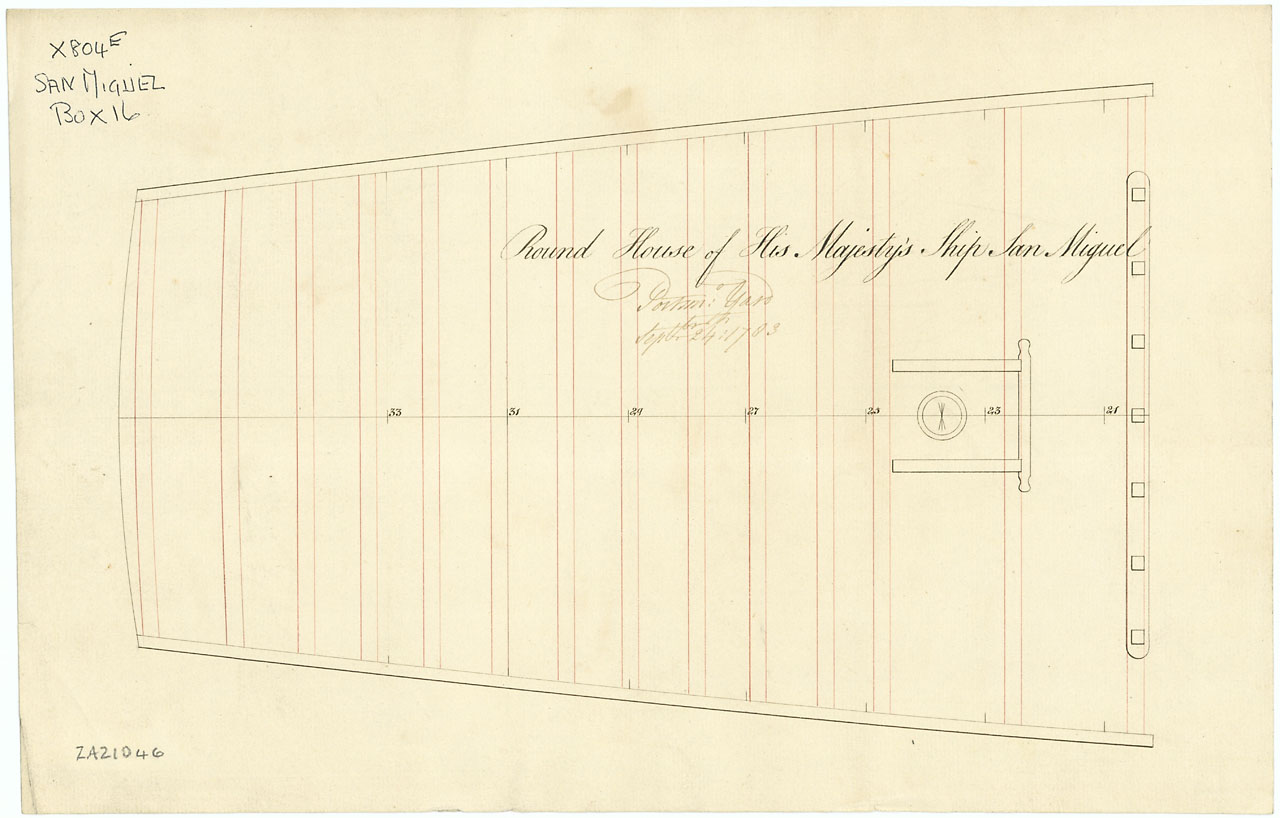 X804E
SAN MIGUEL
Box 16
Round House of His Majesty's Ship San Miguel
Portsmo: Yard
Septr 24th 1783
33 31 29 27 25 23 21
ZAZ1046